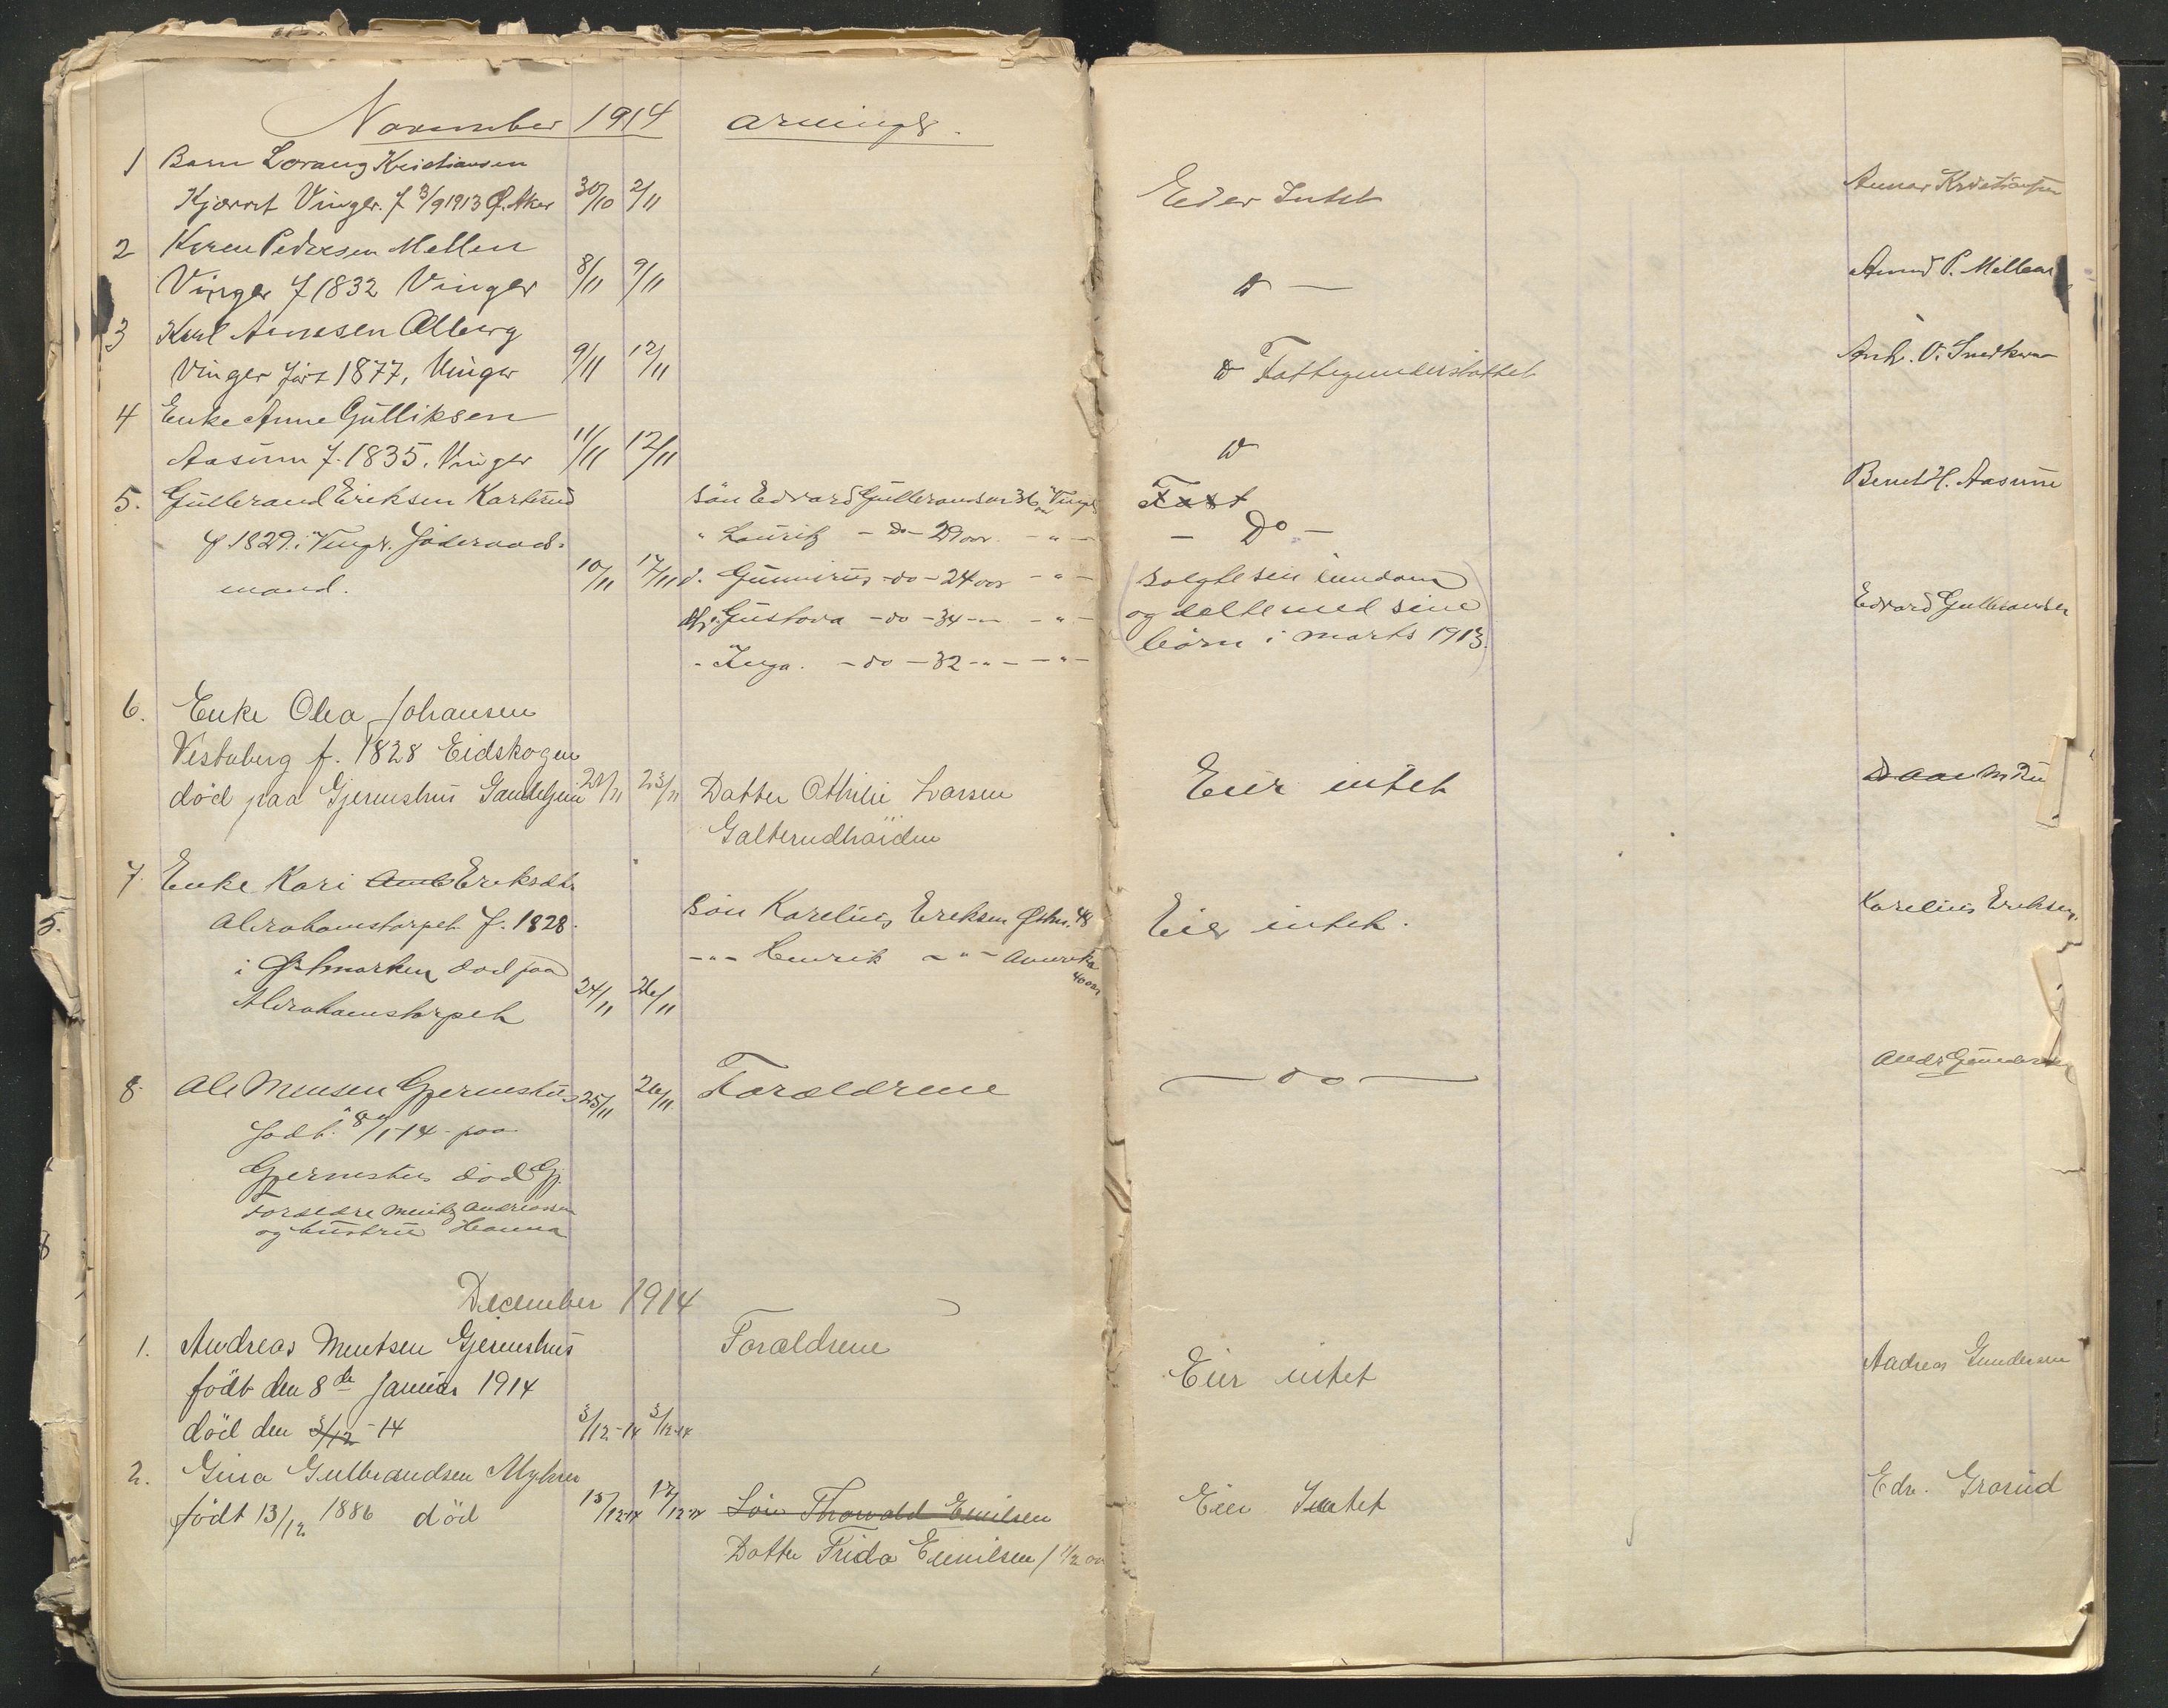 November 1914 arvinger.
1 Barn Lorang Kristiansen
Kjerret Vinger. f 3/9 1913 Ø. Aker 30/10 2/11 Eier Intet Kristiansen
2 Karen Pedersen Mellem
Vinger f 1832 Vinger 8/11 9/11 do — P. Mellem
3 Karl Arnesen
Vinger født 1877, Vinger 9/11 12/11 do Fattigunderstøttet V.
4 Enke Anne Gulliksen
Aasum f. 1835. Vinger 11/11 12/11 do Bernt H. Aasum
5. Gulbrand Eriksen Karterud Søn Edvard Gulbrandsen 36 aar Vinger
f 1829 i Vinger. Føderaads- " Lauritz - do - 29 aar. - " - — Do —
mand. 10/11 17/11 d. Gunnerius - do - 24 aar - " - (solgte sin eiendom
Gustava - do - 34 - " - - " - og delte med sine Edvard Gulbrandsen
" Inga. - do - 32 - " - - " - børn i marts 1913.)
6. Enke Olea Johansen
Vestaberg f. 1828 Eidskogen
død paa Gjermshus 21/11 23/11 Datter Othilie Larsen Eier intet
Galterudhøiden
7. Enke Kari Eriksdtr.
Abrahamstorpet f. 1828. Søn Karelius Eriksen Østm. 48 Eier intet. Karelius Eriksen.
i Østmarken død paa - " - Henrik - " - Amerika
Abrahamstorpet 24/11 26/11 40 aar
8. Ole Mentsen Gjermshus 25/11 26/11 Forældrene — do — Andr Gundersen
født. 8/1-14 paa
Gjermshus død Gj.
Forældre Mentz Andreassen
og hustru Hanna
December 1914
1. Andreas Mentsen Gjermshus Forældrene Andreas Gundersen
født den 8de Januar 1914 Eier intet
död den 3/12-14 3/12-14 3/12-14
2. Gina Gulbrandsen Myhren Edv. Grasud
født 13/12 1886 död 15/12-14 17/12-14 Søn Thorvald Emilsen Eier Intet
Datter Frida Emilsen 1 1/2 aar